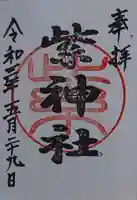 奉拝
紫神社
令和二年五月二十九日